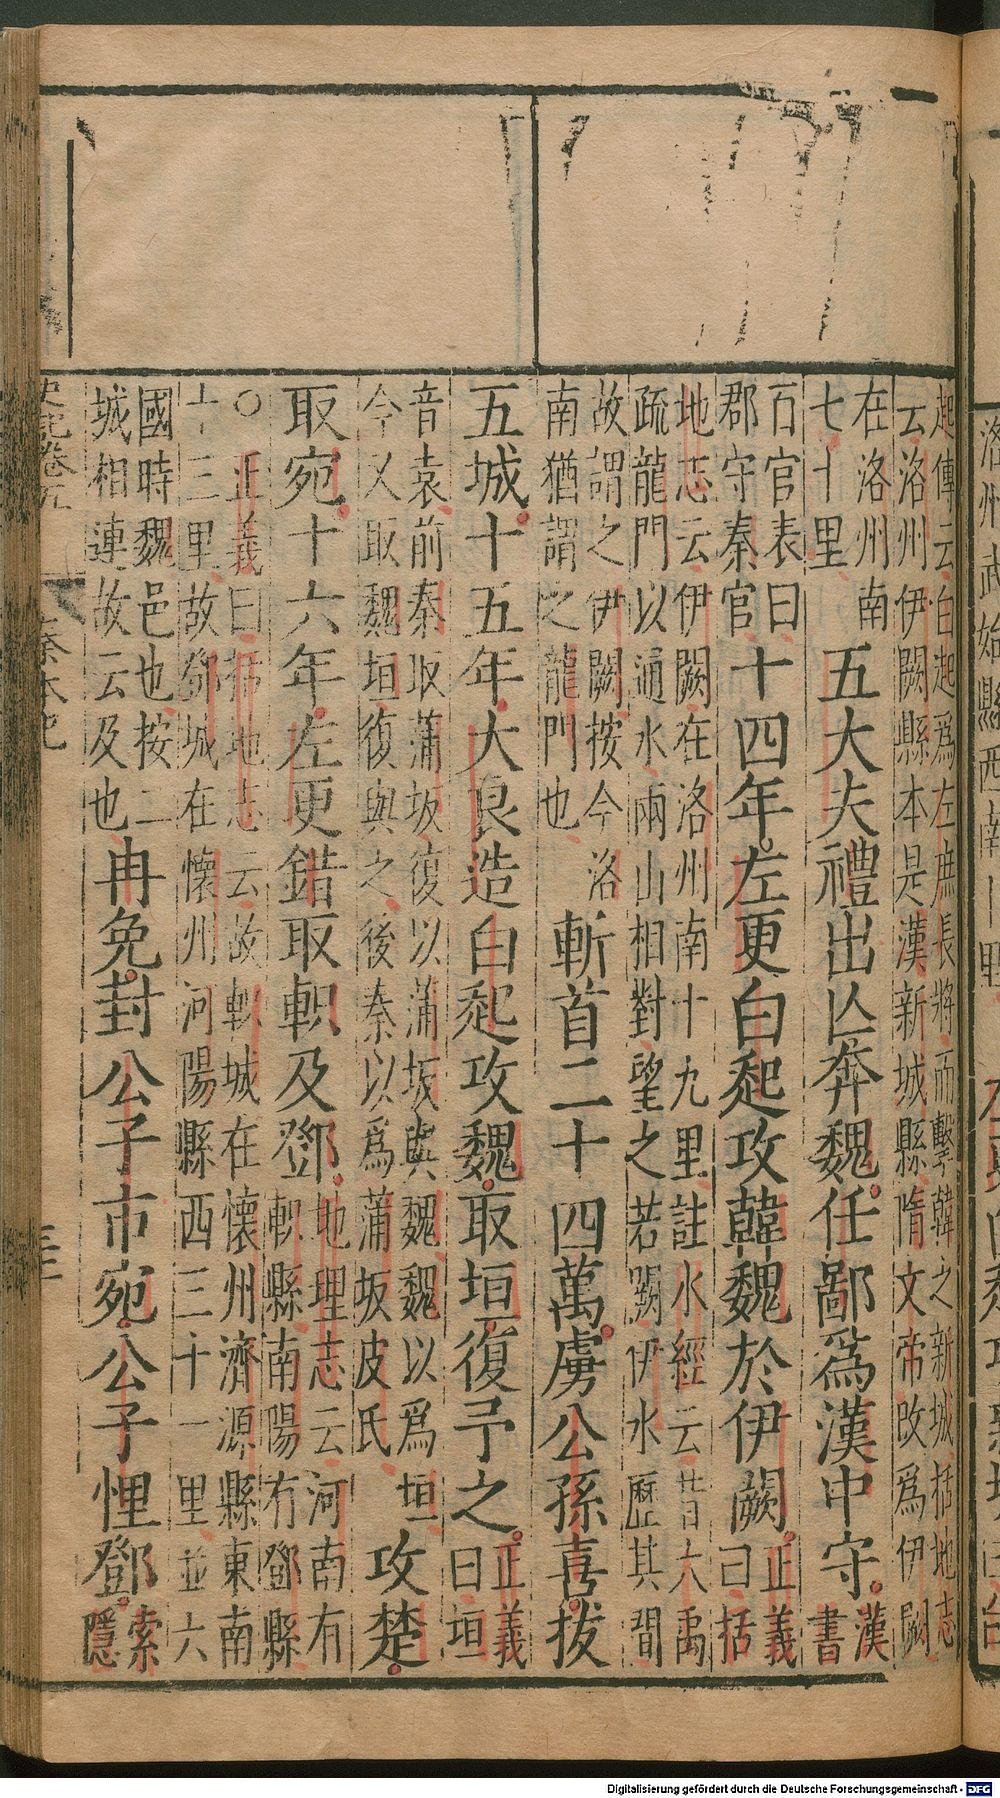 起傳云白起爲左庶長將而擊韓之新城括地志
云洛州伊闕縣本是漢新城縣隋文帝改爲伊闕
在洛州南
七十里
五大夫禮出亾奔魏任鄙爲漢中守漢
書
百官表曰
郡守秦官
十四年左更白起攻韓魏於伊闕正義
曰括
地志云伊闕在洛州南十九里註水經云昔大禹
疏龍門以通水兩山相對望之若闕伊水歷其間
故謂之伊闕按今洛
南猶謂之龍門也
斬首二十四萬虜公孫喜拔
五城十五年大良造白起攻魏取垣復予之正義
曰垣
音袁前秦取蒲坂復以蒲坂與魏魏以爲垣
今又取魏垣復與之後秦以爲蒲坂皮氏
攻楚
取宛十六年左更錯取軹及鄧地理志云河南有
軹縣南陽有鄧縣
○正義曰括地志云故軹城在懷州濟源縣東南
十三里故鄧城在懷州河陽縣西三十一里並六
國時魏邑也按二
城相連故云及也
冉免封公子市宛公子悝鄧索
隱
史記卷五
秦本紀
Digitalisierung gefördert durch die Deutsche Forschungsgemeinschaft - DFG